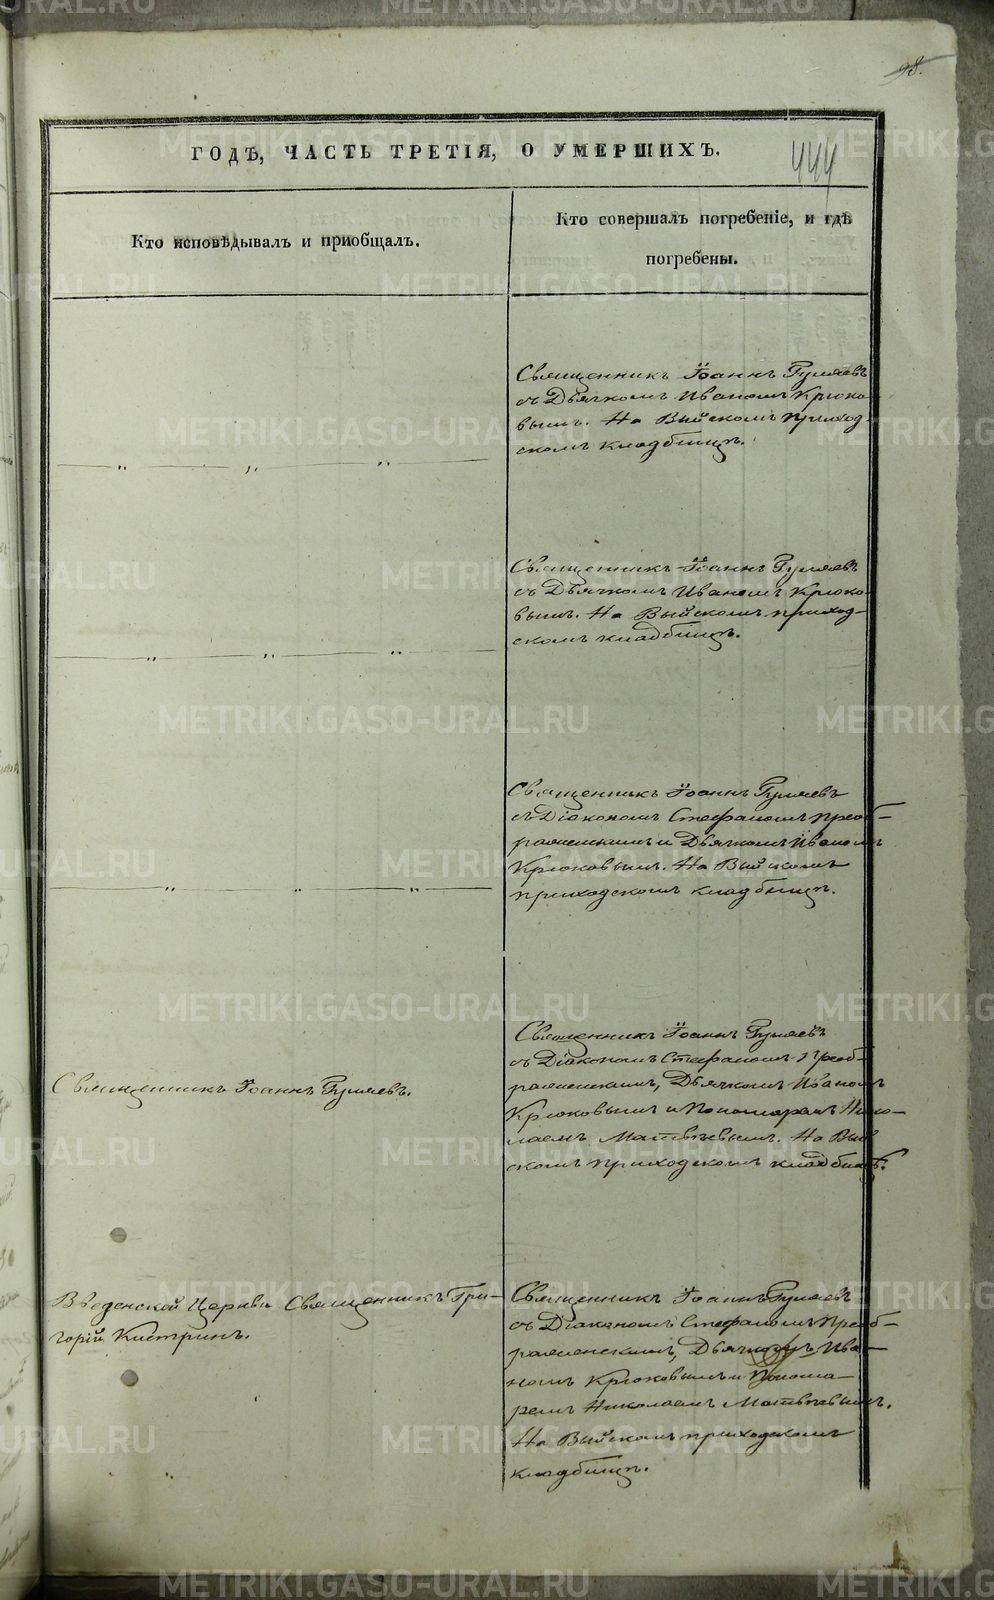 98.
444
ГОДЪ, ЧАСТЬ ТРЕТІЯ, О УМЕРШИХЪ.
Кто исповѣдывалъ и приобщалъ.
Кто совершалъ погребеніе, и гдѣ
погребены.
Священникъ Іоаннъ Гуляевъ
съ Дьячкомъ Иваномъ Крюко-
вымъ. На Выйскомъ приход-
скомъ кладбищѣ.
Священникъ Іоаннъ Гуляевъ
съ Дьячкомъ Иваномъ Крюко-
вымъ. На Выйскомъ приход-
скомъ кладбищѣ.
Священникъ Іоаннъ Гуляевъ
съ Діакономъ Стефаномъ Преоб-
раженскимъ и Дьячкомъ Иваномъ
Крюковымъ. На Выйскомъ
приходскомъ кладбищѣ.
Священникъ Іоаннъ Гуляевъ.
Священникъ Іоаннъ Гуляевъ
съ Діакономъ Стефаномъ Преоб-
раженскимъ, Дьячкомъ Иваномъ
Крюковымъ и Пономаремъ Нико-
лаемъ Матвѣевымъ. На Вый-
скомъ приходскомъ кладбищѣ.
Введенской Церкви Священникъ Гри-
горій
Священникъ Іоаннъ Гуляевъ
съ Діакономъ Стефаномъ Преоб-
раженскимъ, Дьячкомъ Ива-
номъ Крюковымъ и Понома-
ремъ Николаемъ Матвѣевымъ.
На Выйскомъ приходскомъ
кладбищѣ.
METRIKI.GASO-URAL.RU